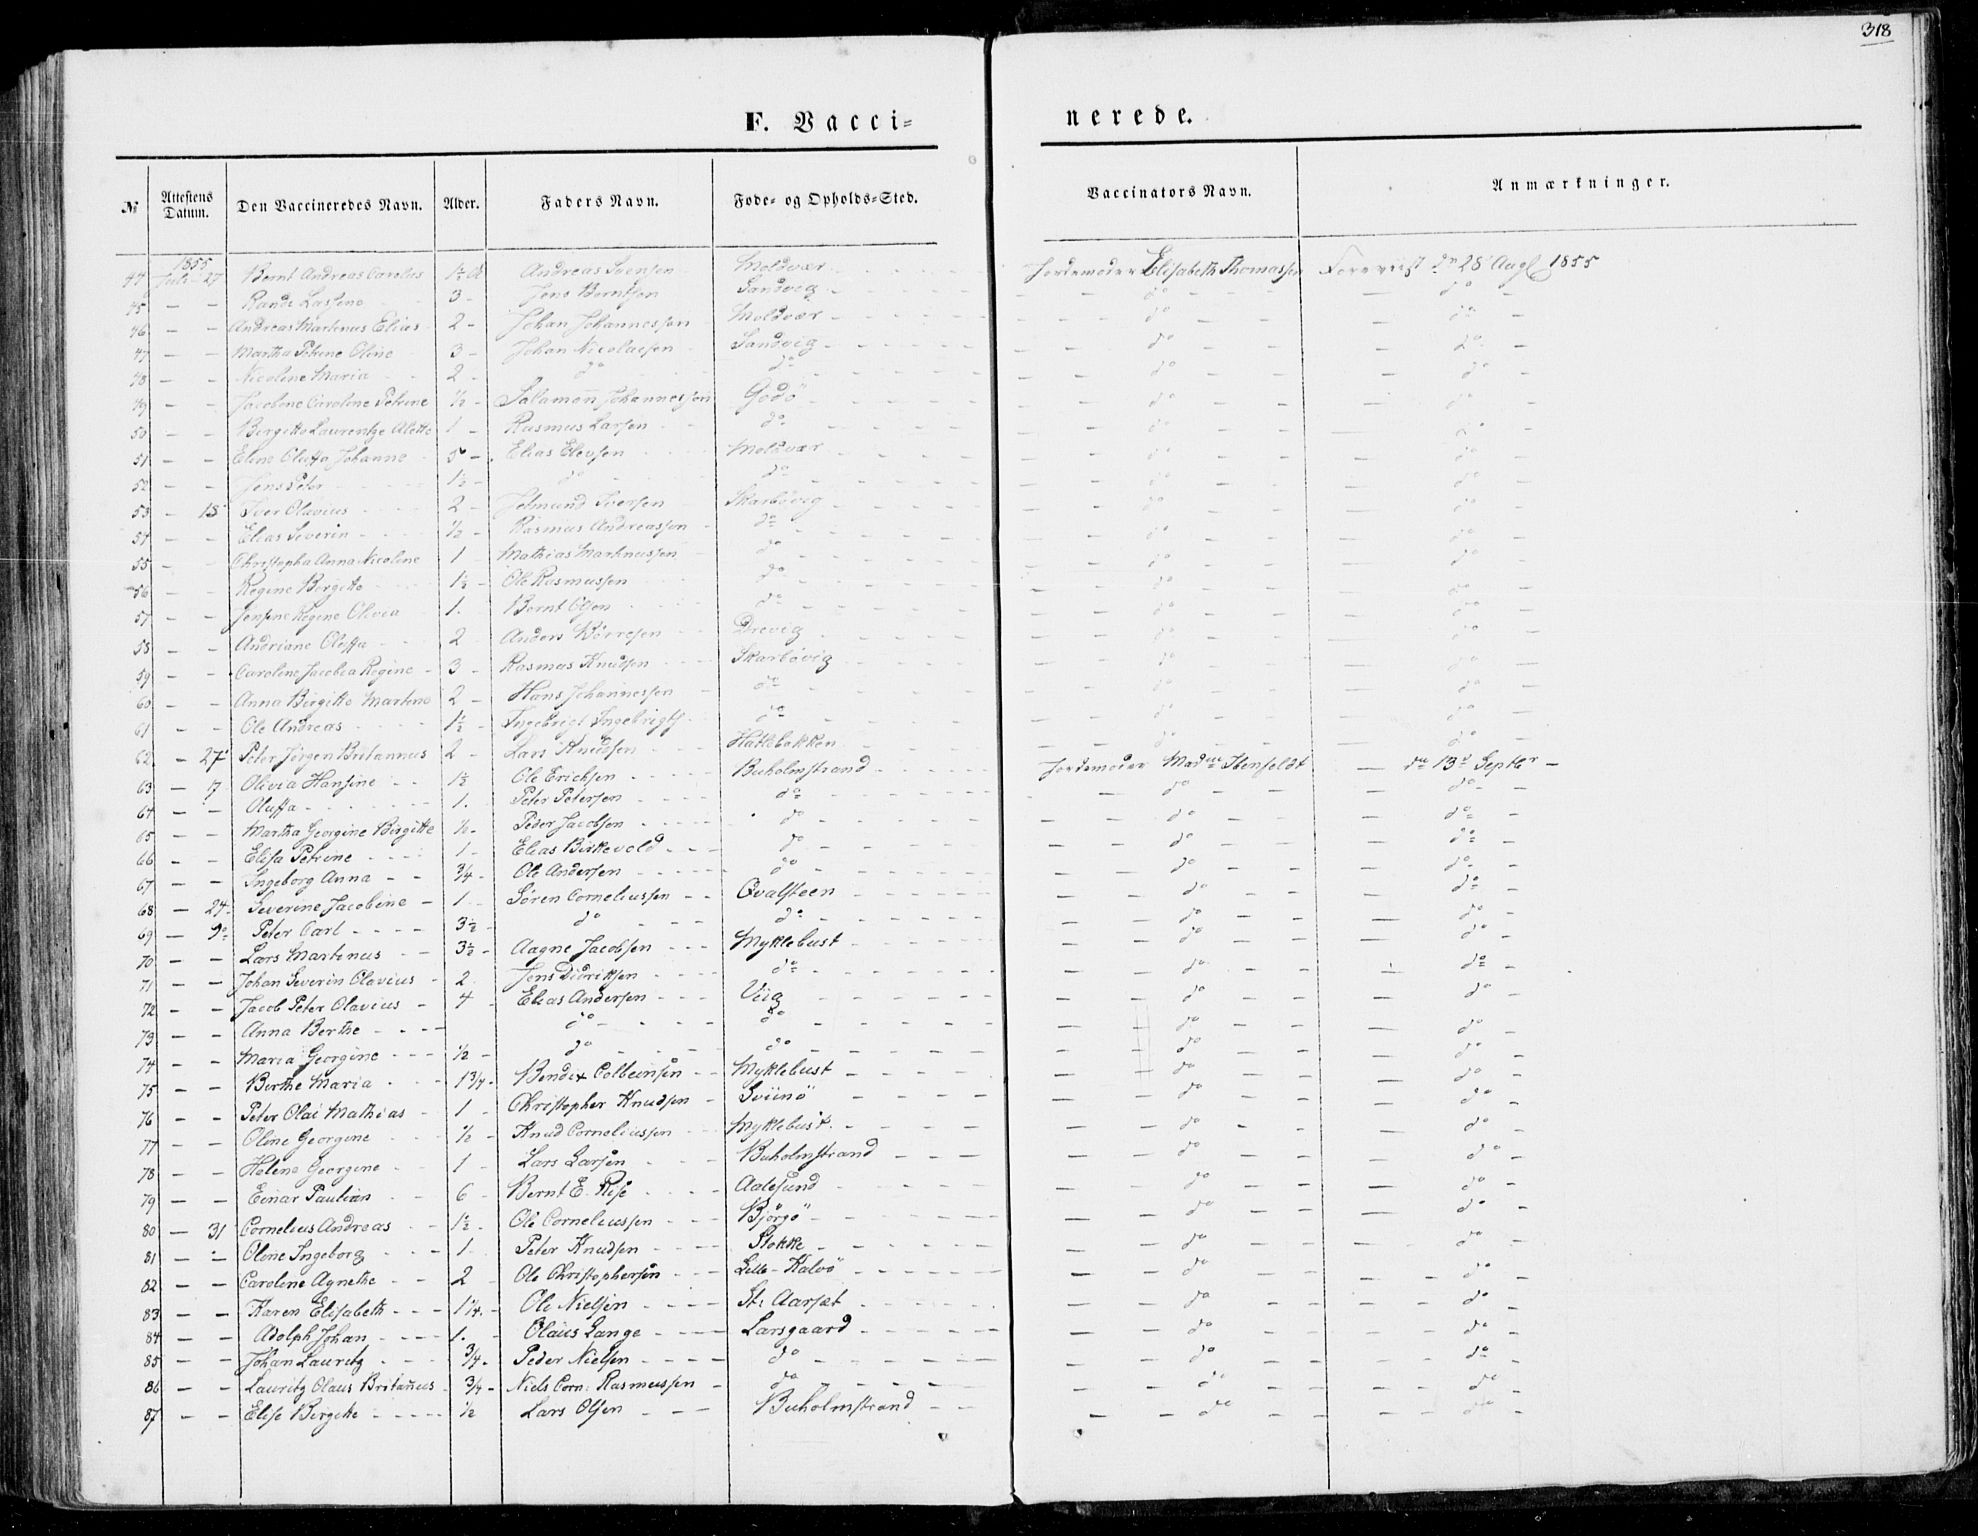 318
F. Vacci=
nerede.
№ Attestens Datum. Den Vaccineredes Navn. Alder. Faders Navn. Føde- og Opholds-Sted. Vaccinators Navn. Anmærkninger.
1855
44 Juli 27 Bernt Andreas Carolus 1½ Andreas Svensen Moldvær Jordemoder Elisabeth Thomassen Foreviist dn 28 Aug 1855
45 — — Rande Lassene 3 - Jens Berntsen Sandvig — do — — do —
46 — — Andreas Martinus Elias 2 - Johan Johannessen Moldvær — do — — do —
47 — — Martha Petrine Oline 3 - Johan Nicolaisen Sandvig — do — — do —
48 — — Nicoline Maria 2 - do do — do — — do —
49 — — Jacobine Caroline Petrine ½ - Salamon Johannessen Godö — do — — do —
50 — — Birgitte Laurentze Alette 1 - Rasmus Larsen do — do — — do —
51 — — Eline Oluffa Johanne 5 - Elias Elevsen Moldvær — do — — do —
52 — — Jens Peter 1½ - do do — do — — do —
53 — 18 Iver Olavius 2 - Jetmund Iversen Skarbövig — do — — do —
54 — — Elias Severin ½ - Rasmus Andreassen do — do — — do —
55 — — Christopha Anna Nicoline 1 Mathias Martinussen do — do — — do —
56 — — Regine Birgitte 1½ - Ole Rasmussen do — do — — do —
57 — — Jensine Regine Olivia 1. Bernt Olsen do — do — — do —
58 — — Andriane Oleffa 2 Anders Körresen Drevig — do — — do —
59 — — Caroline Jacobea Regine 3 - Rasmus Knudsen Skarbövig — do — — do —
60 — — Anna Birgitte Martine 2 - Hans Johannessen do — do — — do —
61 — — Ole Andreas 1½ - Ingebrigt Ingebrigts. do — do — — do —
62 — 27 Peter Jörgen Britannus 2 - Lars Knudsen Hatlebakken — do — — do —
63 — 7 Olivia Hansine 1½ Ole Erichsen Buholmstrand Jordemoder Madme Stenfeldt — dn 13de Septbr —
64 — — Oluffa 1. Peter Petersen do — do — — do —
65 — — Martha Georgine Birgitte ½ - Peder Jacobsen do — do — — do —
66 — — Elisa Petrine 1 - Elias Birkevold do — do — — do —
67 — — Ingeborg Anna ¾ - Ole Andersen do — do — — do —
68 — 24 Severine Jacobine 1 Sören Corneliussen Qvalsteen — do — — do —
69 — 9 Peter Carl 3½ do do — do — — do —
70 — — Lars Martinus 3½ - Aagne Jacobsen Myklebust — do — — do —
71 — — Johan Severin Olavius 2 Jens Didriksen do — do — — do —
72 — — Jacob Peter Olavius 4 Elias Andersen Viig — do — — do —
73 — — Anna Berthe do do — do — — do —
74 — — Maria Georgine ½ - do do — do — — do —
75 — — Berthe Maria 1¾ - Bendix Colbeinsen Myklebust — do — — do —
76 — — Peter Olai Mathias 1 Christopher Knudsen Sviinö — do — — do —
77 — — Oline Georgine ½ - Knud Corneliussen Myklebust — do — — do —
78 — — Helene Georgine 1 - Lars Larsen Buholmstrand — do — — do —
79 — — Einar Paulian 6 - Bernt E. Riise Aalesund — do — — do —
80 — 31 Cornelius Andreas 1½ - Ole Corneliussen Björgö — do — — do —
81 — — Oline Ingeborg 1 Peter Knudsen Slokke — do — — do —
82 — — Caroline Agnethe 2 Ole Christophersen Lille-Kalvö — do — — do —
83 — — Karen Elisabeth 1¼ - Ole Nielsen St: Aarset — do — — do —
84 — — Adolph Johan 1. Olaus Lange Larsgaard — do — — do —
85 — — Johan Lauritz ¾ - Peder Nielsen do — do — — do —
86 — — Lauritz Olaus Britannus ¾ - Niels Corn: Rasmussen do — do — — do —
87 — — Elise Birgitte ½ Lars Olsen Buholmstrand — do — — do —